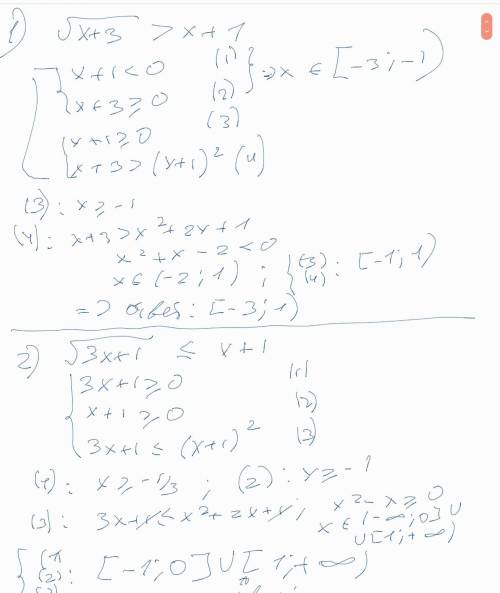 1) √x+3 > x+1
x+1<0 (1)
x+3≥0 (2) => x ∈ [-3;-1)
x+1≥0 (3)
x+3>(x+1)² (4)
(3): x≥-1
(4): x+3>x²+2x+1
x²+x-2<0
x∈(-2;1) ; {(3) (4): [-1;1)
=> ответ: [-3;1)
2) √3x+1 ≤ x+1
3x+1≥0 (1)
x+1≥0 (2)
3x+1≤(x+1)² (3)
(1): x≥-1/3 ; (2): x≥-1
(3): 3x+1≤x²+2x+1; x²-x≥0
x∈(-∞;0]∪
∪[1;+∞)
(1)
(2): [-1;0]∪[1;+∞)